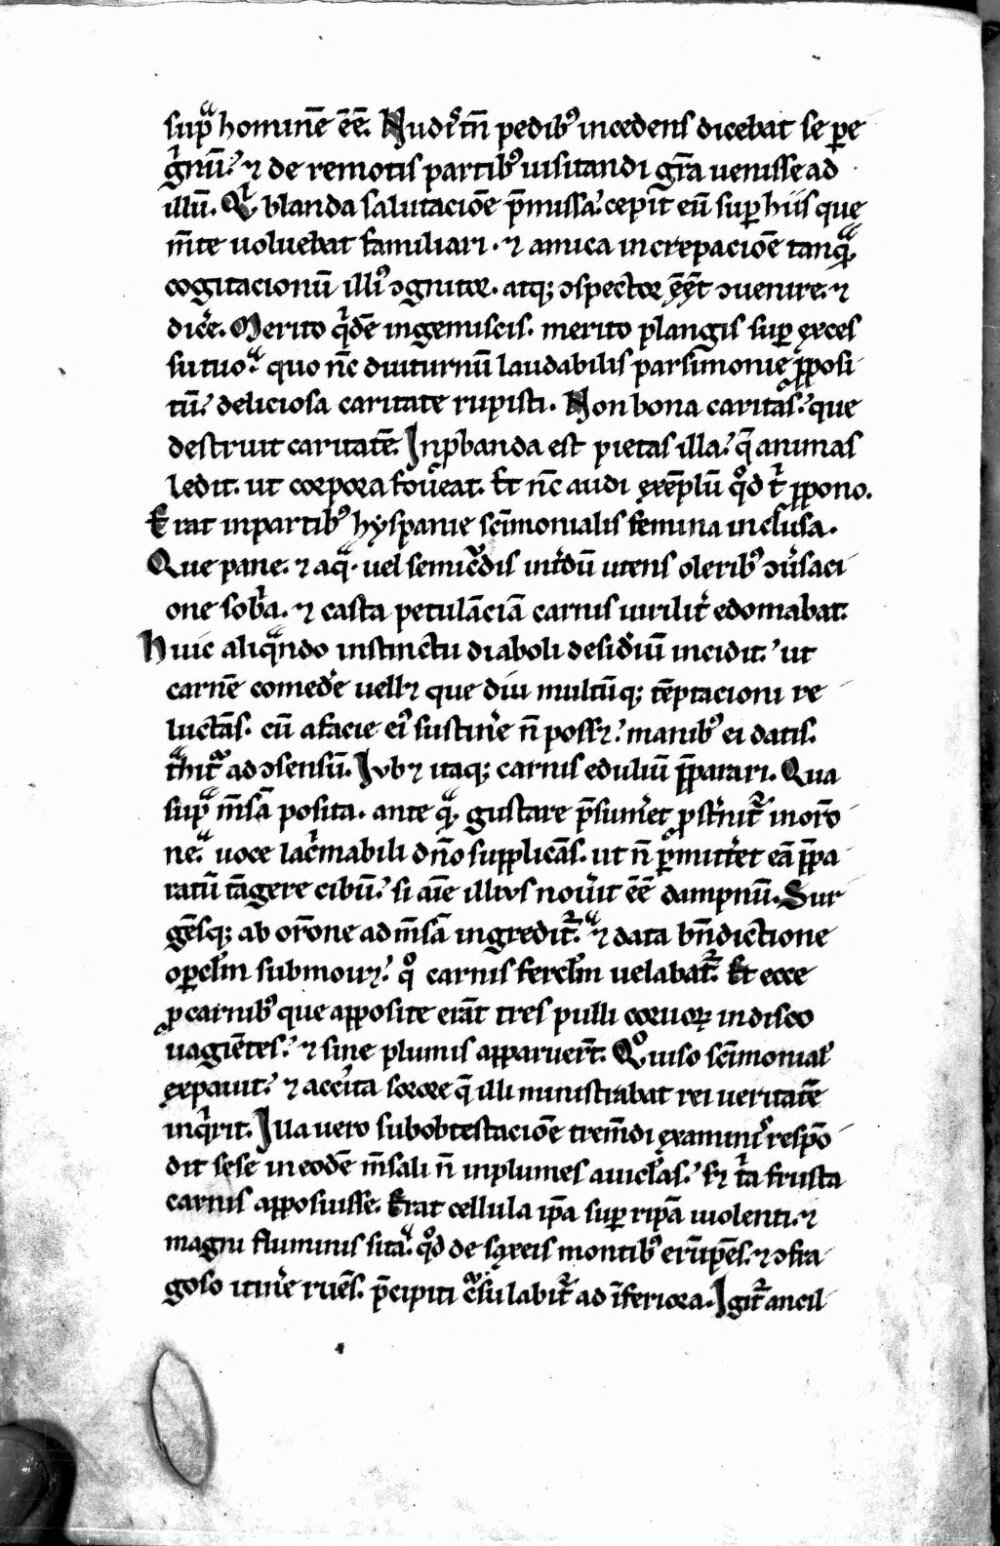 supͣ hominē eē. Nudꝭ tn̄ pedibꝰ incedens dicebat se pere
gͥnū. ⁊ de remotis partibꝰ uisitandi gr̄a uenisse ad
illū. Qͥ blanda salutacōe p̄missa. cepit eū suꝑ hiis que
m̄te uoluebat familiari. ⁊ amica increpaciōe tanqͣꝫ
cogitacionū illiꝰ ꝯgnitor. atqꝫ ꝯspector eēt ꝯuenire. ⁊
dicͤe. Merito qͥdē ingemiscis. merito plangis suꝑ exces
su tuo. quo nc̄ diuturnū laudabilis parsimonie ꝓposi
tū. deliciosa caritate rupisti. Non bona caritas. que
destruit caritatē. Inꝓbanda est pietas illa. q̄ animas
ledit. ut corpora foueat. Et nc̄ audi exēplū qͦd tͥ ꝓpono.
Erat in partibꝰ hyspanie sc̄imonialis femina inclusa.
Que pane. ⁊ aqͣ. uel semicͣdis int̾dū utens oleribꝰ ꝯu̾saci
one sobͥa. ⁊ casta petulāciā carnis uirilit̾ edomabat.
Huic aliqͣndo instinctu diaboli desid̾iū incidit. ut
carnē comed̾e uellꝫ que diu multūqꝫ tēptacioni re
luctās. cū a facie eiꝰ sustin̾e n̄ possꝫ. manibꝰ ei datis.
tͣhitͬ ad ꝯsensū. Iubꝫ itaqꝫ carnis eduliū p̄parari. Qua
supͣ m̄sā posita. ante qͣꝫ gustare p̄sum̾et ꝓst̾nitͬ in orō
ne. uoce lacͥmabili dn̄o supplicās. ut n̄ ꝑmitt̾et eā p̄pa
ratū tāgere cibū. si aīe illius nou̾it eē dampnū. Sur
gēsqꝫ ab orōne ad m̄sā ingreditͬ. ⁊ data bn̄dictione
oꝑcl̄m submouꝫ. qͦ carnis fercl̄m uelabatͬ. Et ecce
ꝓ carnibꝰ que apposite erāt tres pulli coruoꝝ in disco
uagiētes. ⁊ sine plumis apparuerūt. Qͦ uiso sc̄imonial̾
expauit. ⁊ accita sorore q̄ illi ministrabat rei ueritatē
inqͥrit. Illa uero sub obtestaciōe trem̄di examinꝭ respō
dit sese in eodē m̄sali n̄ inplumes auicl̄as. sꝫ tͥa frusta
carnis apposuisse. Erat cellula ip̄a suꝑ ripā uiolenti. ⁊
magni fluminis sita. qͦd de saxeis montibꝰ erūpēs. ⁊ ꝯfra
goso itin̾e ruēs. p̄cipiti cͣsu labitͬ ad īferiora. Igitͬ ancil